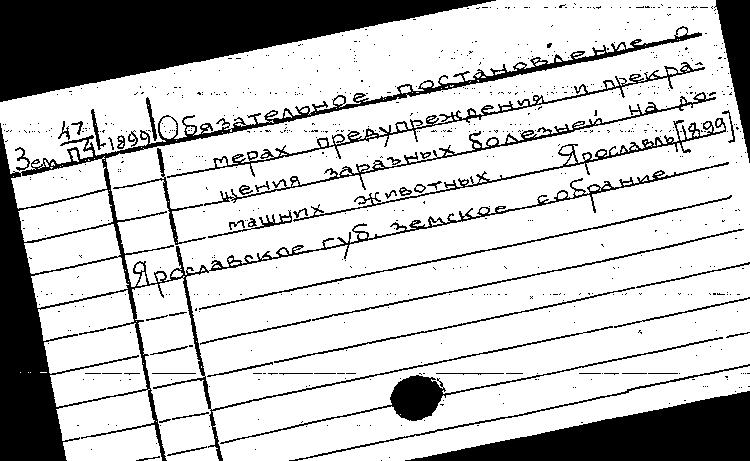 Зем 47/П4-1899 Обязательное постановление о
мерах предупреждения и прекра-
щения заразных болезней на до-
машних животных. Ярославль, [1899].
Ярославское губ. земское собрание.